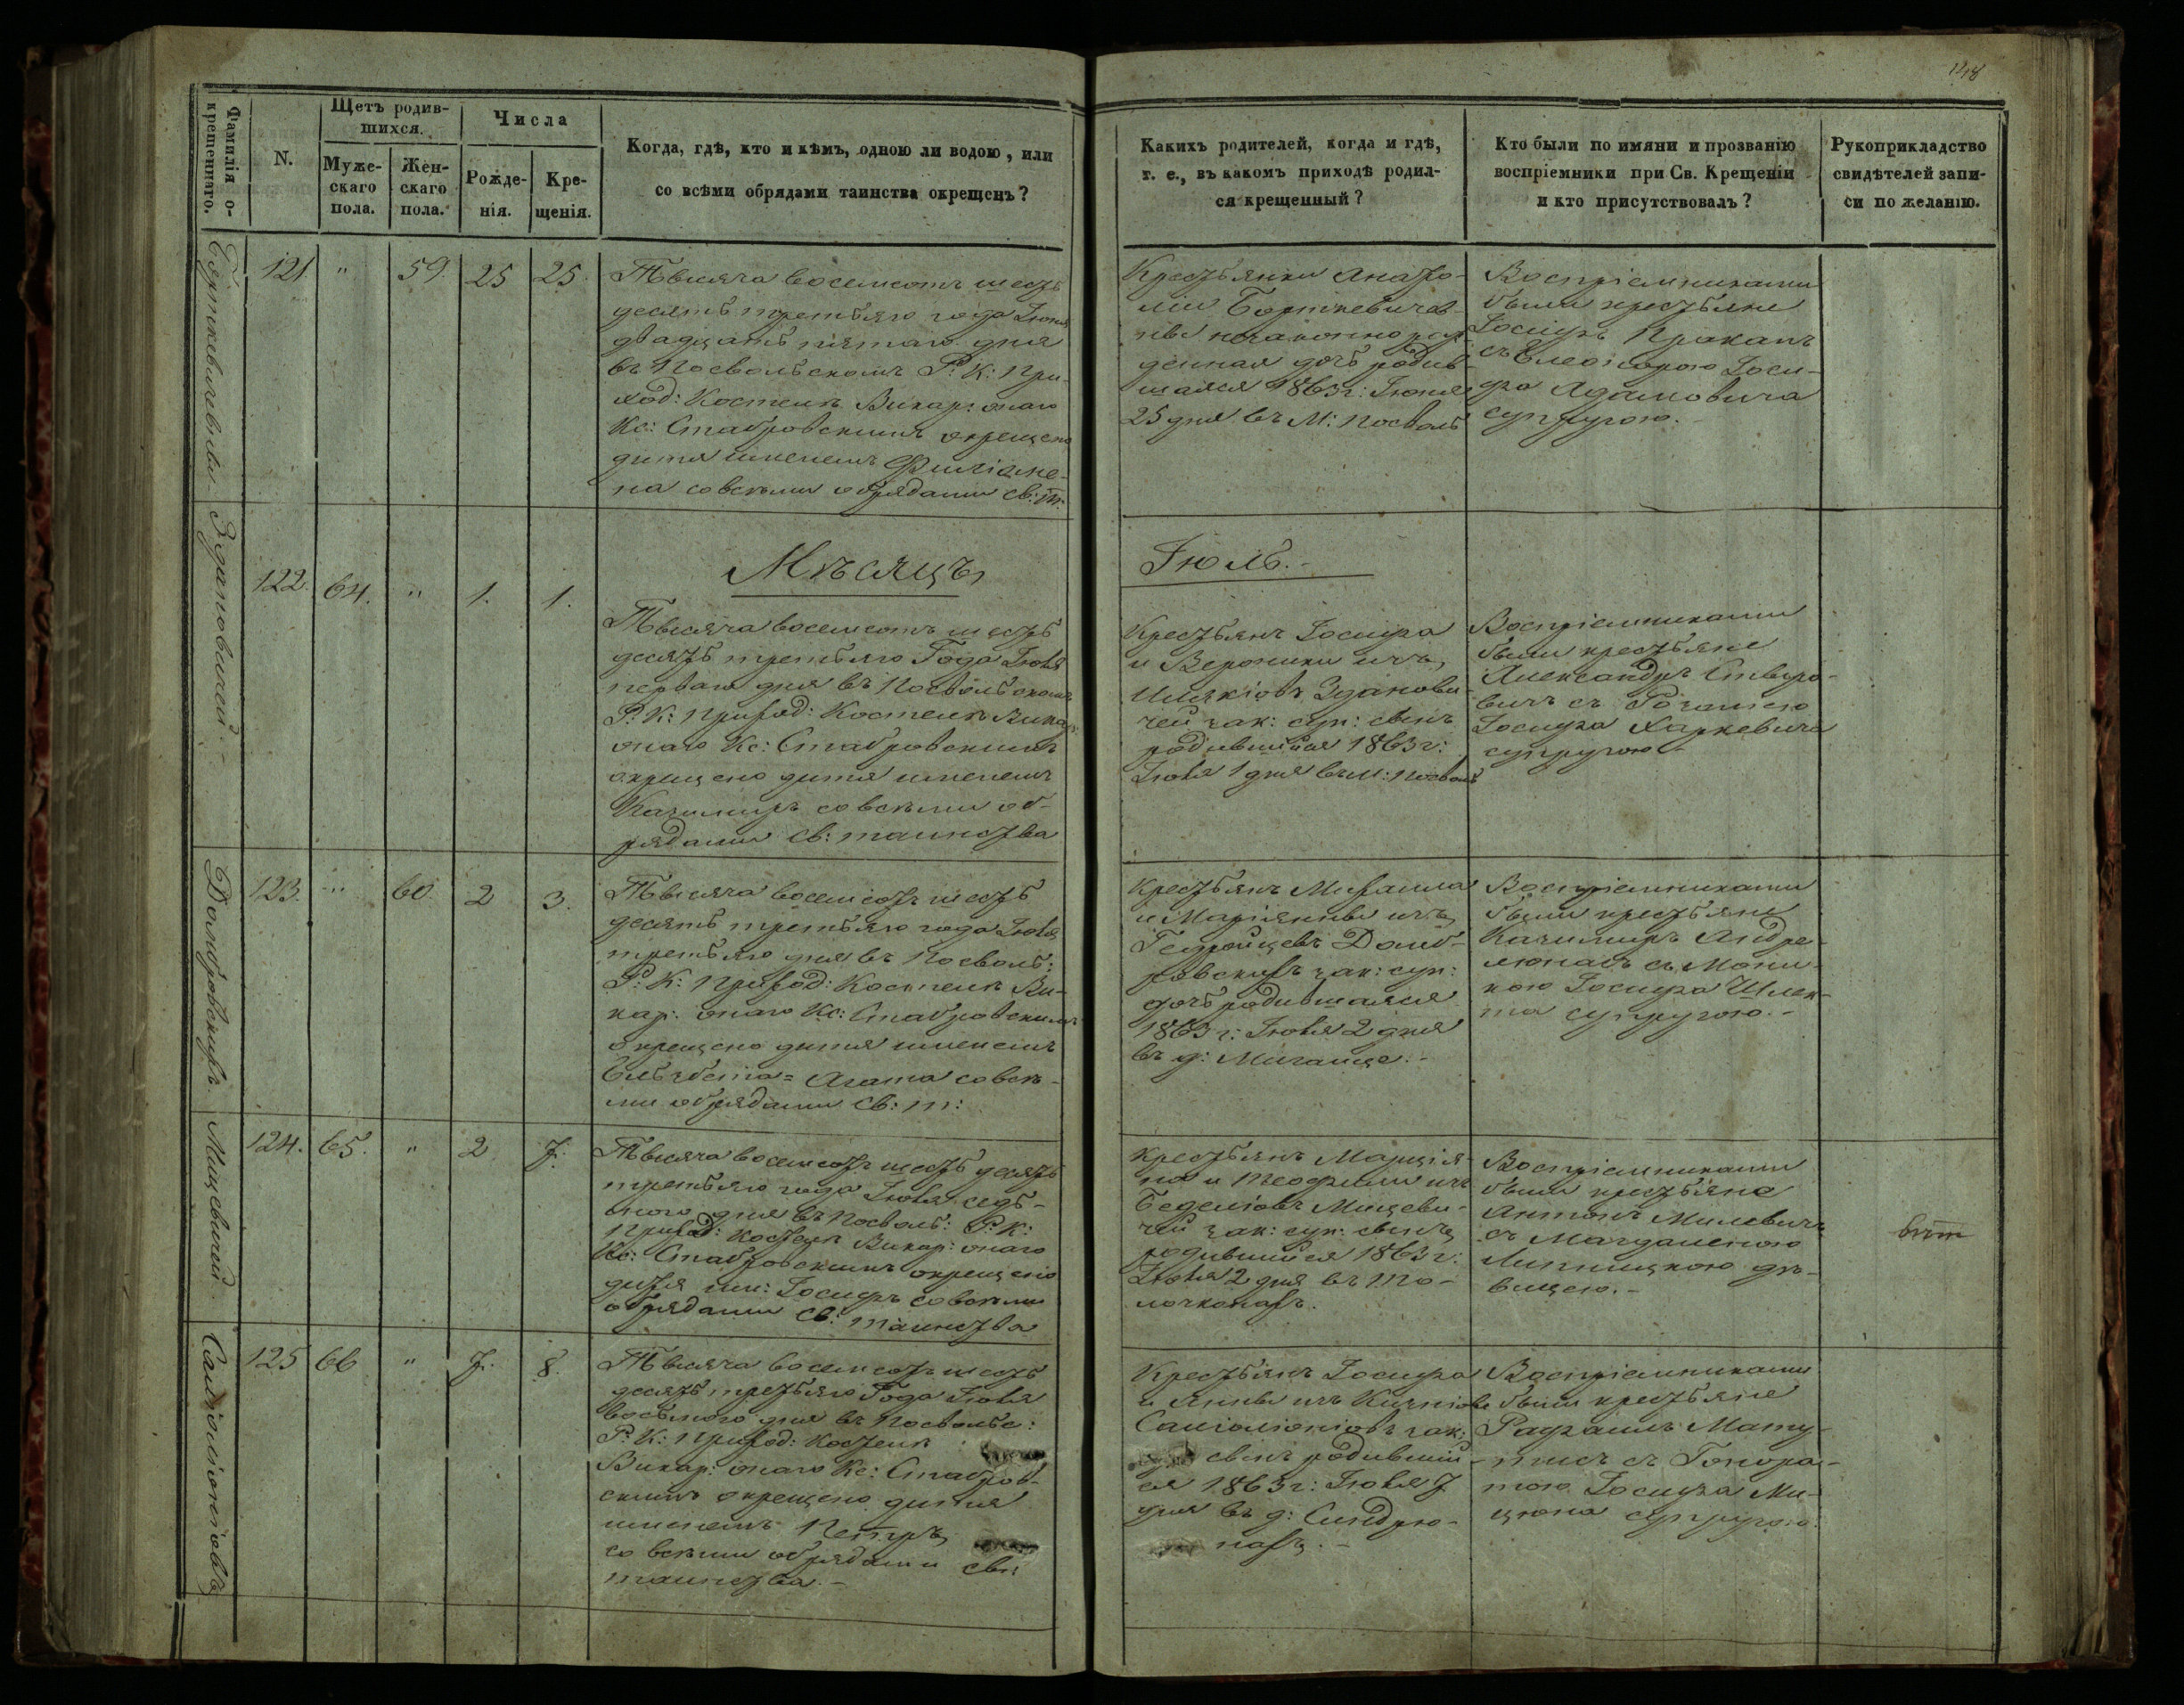 148
Фамилія о-
крещеннаго.
N.
Щетъ родив-
шихся.
Муже-
скаго
пола.
Жен-
скаго
пола.
Числа
Рожде-
нія.
Кре-
щенія.
Когда, гдѣ, кто и кѣмъ, одною ли водою, или
со всѣми обрядами таинства окрещенъ?
Каких родителей, когда и гдѣ,
т. е., въ какомъ приходѣ родил-
ся крещенный?
Кто были по имяни и прозванію
воспріемники при Св. Крещеніи
и кто присутствовалъ?
Рукоприкладство
свидѣтелей запи-
си по желанію.
121 " 59. 25 25.
Тысяча восемсотъ шесть
десятъ третьяго года Іюня
двадцать пятаго дня
въ Посвольскомъ Р: К: При-
ход: Костелѣ Викар: онаго
Кс: Стабровскимъ окрещено
дитя именемъ
на совсѣми обрядами Св: т:
Крестьянки Анато-
ліи Борткевичев-
ны незаконно рож
денная дочь родив-
шаяся 1863 г: Іюня
25 дня въ М: Посволь
Воспріемниками
были крестьяне
Іосифъ Пракапъ
съ Елеонорою Іоси-
фа Адамовича
супругою.
Мѣсяцъ
Іюль.
Здановичей.
122. 64. " 1. 1.
Тысяча восемсотъ шесть
десятъ третьяго Года Іюля
перваго дня въ Посвольскомъ
Р: К: Приход: Костелѣ Викар:
онаго Кс: Стабровскимъ
окрещено дитя именемъ
Казимиръ со всѣми об-
рядами Св: таинства
Крестьянъ Іосифа
и Вероники изъ
Здановы-
чей зак: суп: сынъ
родившійся 1863 г:
Іюля 1 дня въ М: Посволь
Воспріемниками
были крестьяне
Александръ
вичъ съ Розалією
Іосифа Харкевича
супругою
Домбровскихъ.
123. " 60. 2 3.
Тысяча восемсотъ шесть
десятъ третьяго года Іюля
третьяго дня въ Посволь:
Р: К: Приход: Костелѣ Ви-
кар: онаго Кс: Стабровскимъ
окрещено дитя именемъ
Ельзбета= Агата со всѣ-
ми обрядами Св: т:
Крестьянъ Михаила
и Маріянны изъ
Гедройцевъ Домб-
ровскихъ зак: суп:
дочь родившаяся
1863 г: Іюля 2 дня
въ д:
Воспріемниками
были крестьяне
Казимиръ Андре-
люнасъ съ Мони-
кою Іосифа
та супругою.-
Мицевичей.
124. 65. " 2 7.
Тысяча восемсотъ шесть десятъ
третьяго года Іюля седь-
мого дня въ Посволь: Р: К:
Приход: Костелѣ Викар: онаго
Кс: Стабровскимъ окрещено
дитя им: Іосифъ со всѣми
обрядами Св: таинства
Крестьянъ Марція-
на и Теофили изъ
Мицеви-
чей зак: суп: сынъ
родившійся 1863 г:
Іюля 2 дня въ То-
Воспріемниками
были крестьяне
Антонъ Милевичъ
съ Магдаленою
Липницкою дѣ-
вицею.-
Саміоліоніовъ
125 66 " 7. 8.
Тысяча восемсотъ шесть
десятъ третьяго Года Іюля
восьмого дня въ Посвольс:
Р: К: Приход: Костелѣ
Викар: онаго Кс: Стабров-
скимъ окрещено дитя
именемъ Петръ,
со всѣми обрядами Св:
таинства.-
Крестьянъ Іосифа
и Анны изъ
Саміоліоніовъ зак:
сынъ родившій-
ся 1863 г: Іюля 7
дня въ д: Синдрю-
нахъ.-
Воспріемниками
были крестьяне
Рафаилъ Мату-
съ Гонора-
тою Іосифа Ми-
цюна супругою.